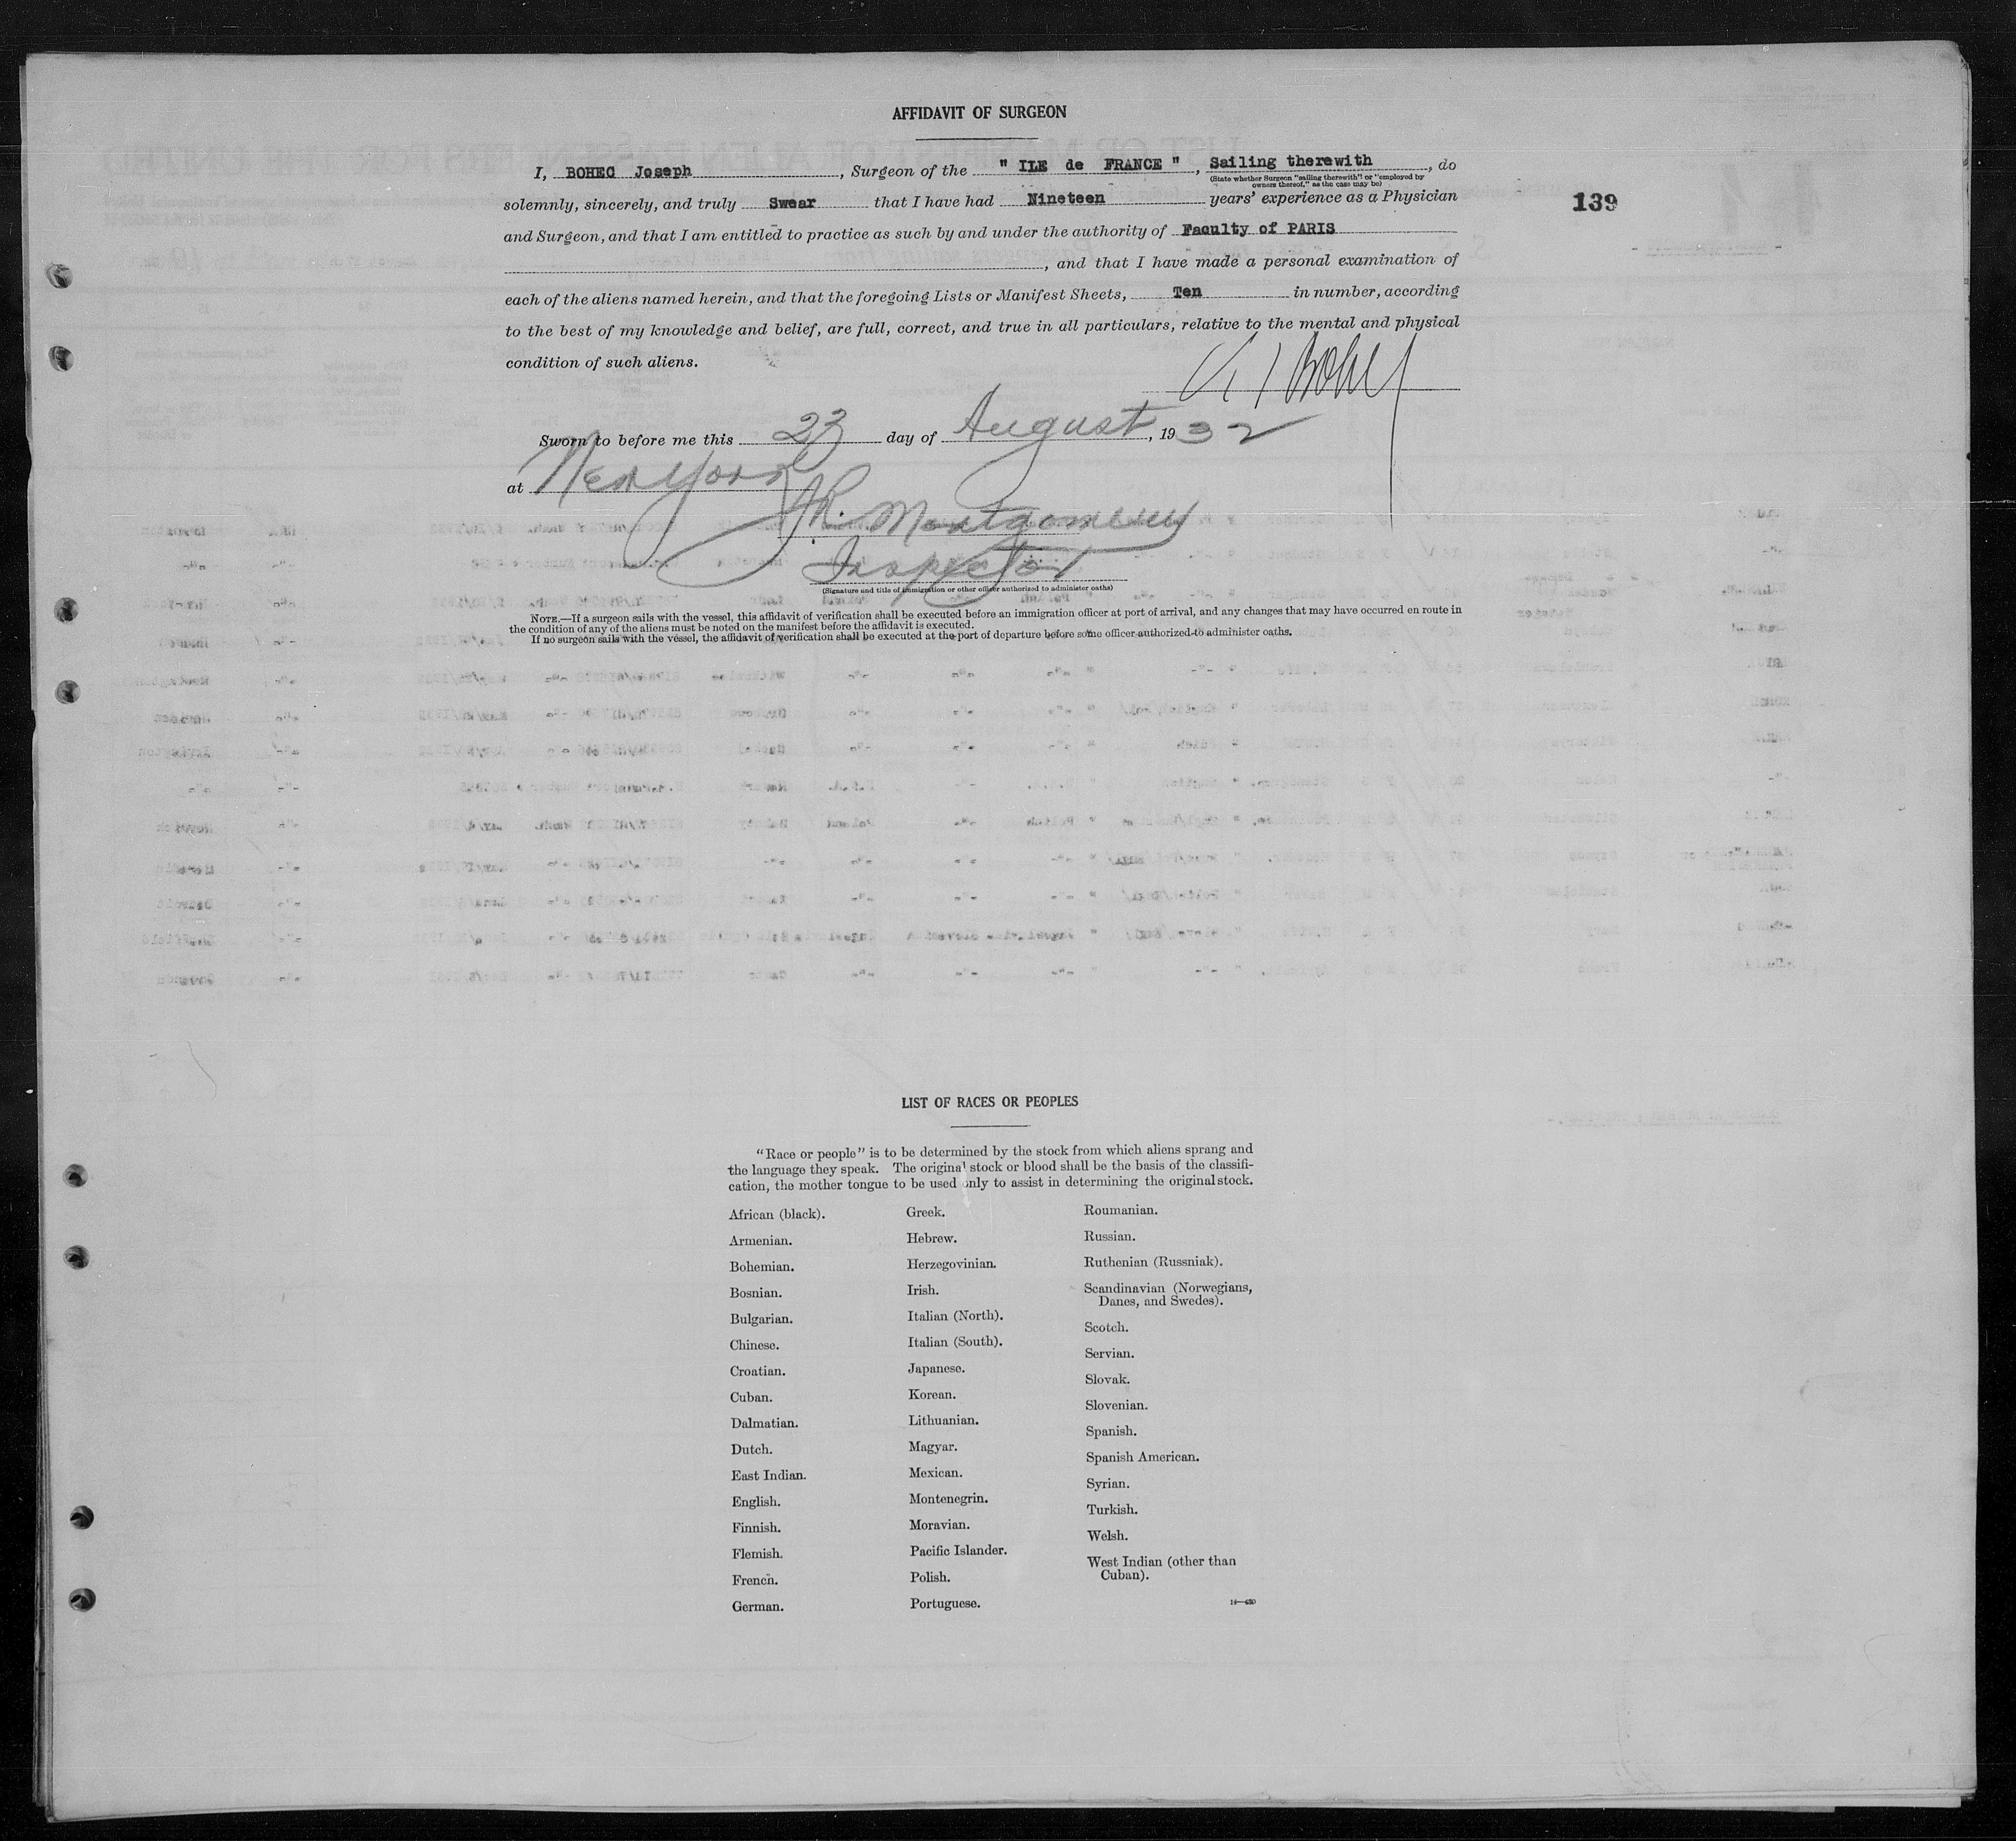 AFFIDAVIT OF SURGEON
I, BOHEC Joseph, Surgeon of the " ILE de FRANCE ", Sailing therewith, do
(State whether Surgeon "sailing therewith" or "employed by
owners thereof," as the case may be)
139
solemnly, sincerely, and truly Swear that I have had Nineteen years' experience as a Physician
and Surgeon, and that I am entitled to practice as such by and under the authority of Faculty of PARIS
, and that I have made a personal examination of
each of the aliens named herein, and that the foregoing Lists or Manifest Sheets, Ten in number, according
to the best of my knowledge and belief, are full, correct, and true in all particulars, relative to the mental and physical
condition of such aliens.
Bohec
Sworn to before me this 23 day of August, 1932
at New York
Montgomery
Inspector
(Signature and title of immigration or other officer authorized to administer oaths)
NOTE.—If a surgeon sails with the vessel, this affidavit of verification shall be executed before an immigration officer at port of arrival, and any changes that may have occurred en route in
the condition of any of the aliens must be noted on the manifest before the affidavit is executed.
If no surgeon sails with the vessel, the affidavit of verification shall be executed at the port of departure before some officer authorized to administer oaths.
LIST OF RACES OR PEOPLES
"Race or people" is to be determined by the stock from which aliens sprang and
the language they speak. The original stock or blood shall be the basis of the classifi-
cation, the mother tongue to be used only to assist in determining the original stock.
African (black).
Armenian.
Bohemian.
Bosnian.
Bulgarian.
Chinese.
Croatian.
Cuban.
Dalmatian.
Dutch.
East Indian.
English.
Finnish.
Flemish.
French.
German.
Greek.
Hebrew.
Herzegovinian.
Irish.
Italian (North).
Italian (South).
Japanese.
Korean.
Lithuanian.
Magyar.
Mexican.
Montenegrin.
Moravian.
Pacific Islander.
Polish.
Portuguese.
Roumanian.
Russian.
Ruthenian (Russniak).
Scandinavian (Norwegians,
Danes, and Swedes).
Scotch.
Servian.
Slovak.
Slovenian.
Spanish.
Spanish American.
Syrian.
Turkish.
Welsh.
West Indian (other than
Cuban).